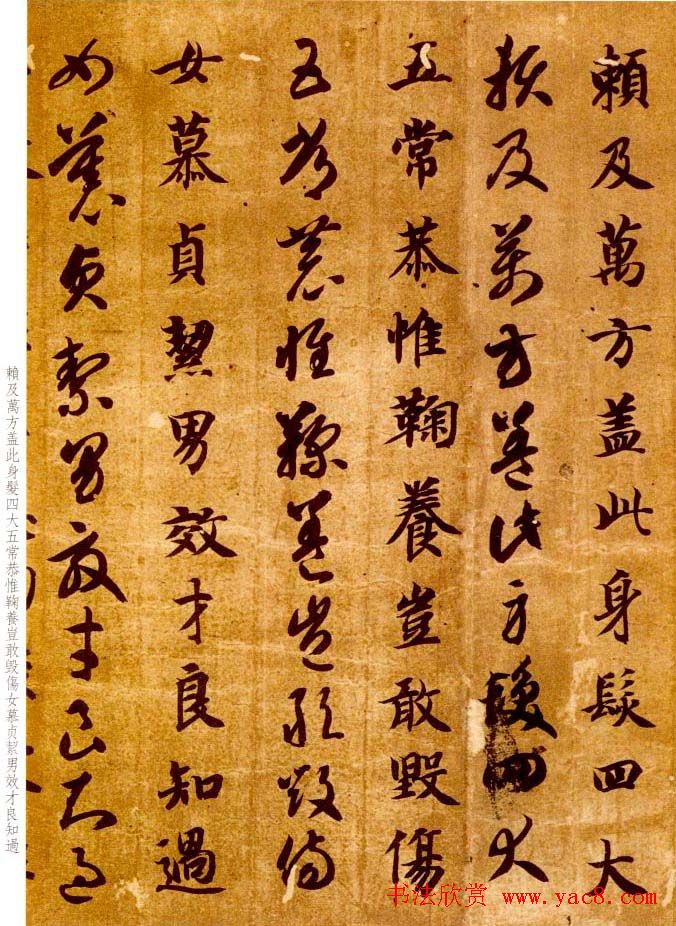 賴及萬方盖此身髮四大
賴及萬方盖此身髮四大
五常恭惟鞠養豈敢毀傷
五常恭惟鞠養豈敢毀傷
女慕貞絜男效才良知過
女慕貞絜男效才良知過
賴及萬方盖此身髮四大五常恭惟鞠養豈敢毀傷女慕贞絜男效才良知過
书法欣赏 www.yac8.com